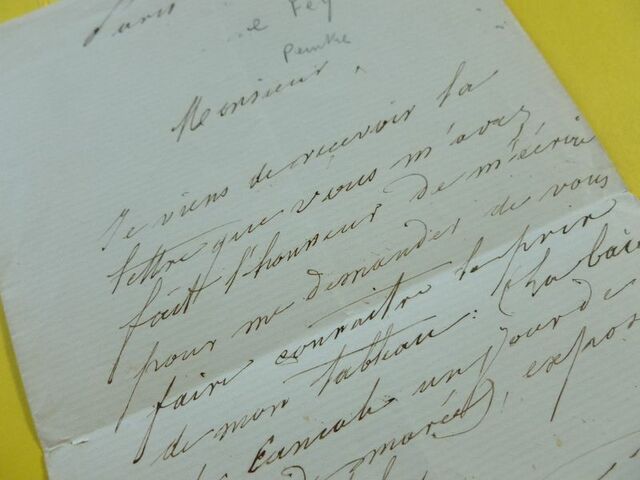 Paris
Le Fey
Peintre
Monsieur,
Je viens de recevoir la
lettre que vous m'avez
fait l'honneur de m'écrire
pour me demander de vous
faire connaître le prix
de mon tableau : (La baie
de Cancale un jour de
de marée), expos